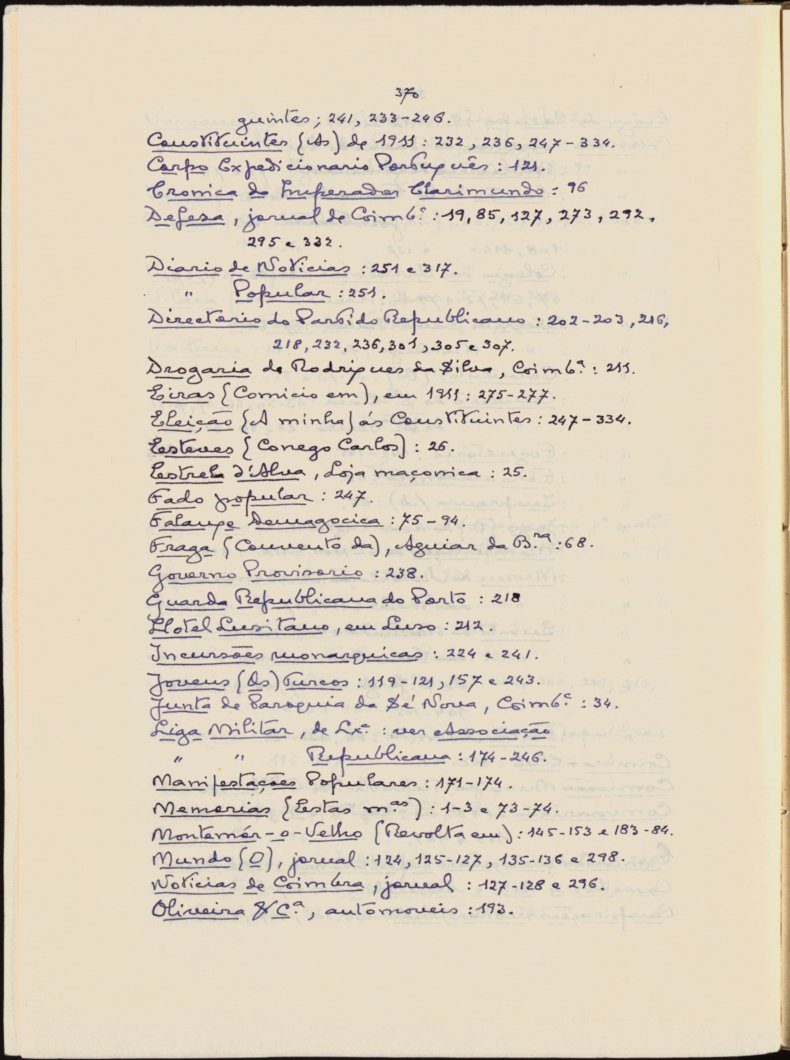 370
guintes; 241, 233-246.
Constituintes (As) de 1911: 232, 236, 247-334.
Corpo Expedicionario Português: 121.
Cronica do Imperador Clarimundo: 96
Defesa, jornal de Coimbª: 19, 85, 127, 273, 292,
295 e 332.
Diario de Noticias: 251 e 317.
" Popular: 251.
Directorio do Partido Republicano: 202-203, 216,
218, 232, 236, 301, 305 e 307.
Drogaria de Rodrigues da Silva, Coimbª: 211.
Eiras (Comicio em), em 1911: 275-277.
Eleição (A minha) ás Constituintes: 247-334.
Esteves (Conego Carlos): 26.
Estrela d'Alva, Loja maçonica: 25.
Fado popular: 247.
Falange Demagocica: 75-94.
Fraga (Convento da), Aguiar da Bʳᵃ: 68.
Governo Provisorio: 238.
Guarda Republicana do Porto: 218
Hotel Lusitano, em Luso: 212.
Incursões monarquicas: 224 e 241.
Jovens (Os) Turcos: 119-121, 157 e 243.
Junta de Paroquia da Sé Nova, Coimbª: 34.
Liga Militar, de Lxª: ver Associação
" " Republicana: 174-246.
Manifestações Populares: 171-174.
Memorias (Estas mᵃˢ): 1-3 e 73-74.
Montemór-o-Velho (Revolta em): 145-153 e 183-84.
Mundo (O), jornal: 124, 125-127, 135-136 e 298.
Noticias de Coimbra, jornal: 127-128 e 296.
Oliveira & Cª, automoveis: 193.